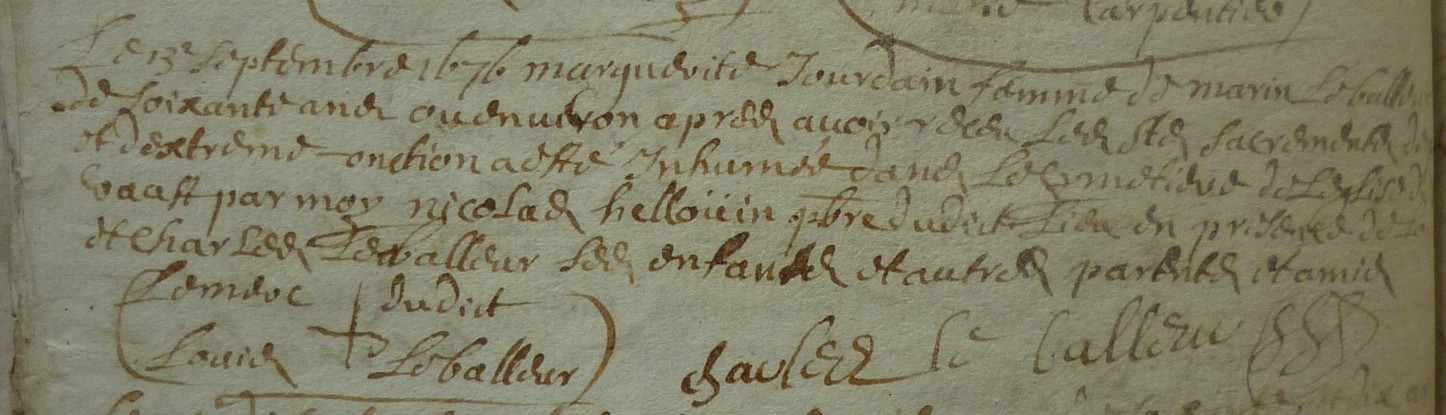 marie Carpentier
Le 13e septembre 1676 marguerite Jourdain femme de marin Leballeur
de soixante ans ou environ apres avoir receu les sts sacrements de
et dextreme onction a esté Inhumée dans le Cymetiere de leglise de
vaast par moy nicolas helloüin pbre dudict lieu en presence de
et Charles Leballeur ses enfants et autres parents et amis
Lemerc dudict
Louis Leballeur charles le balleur